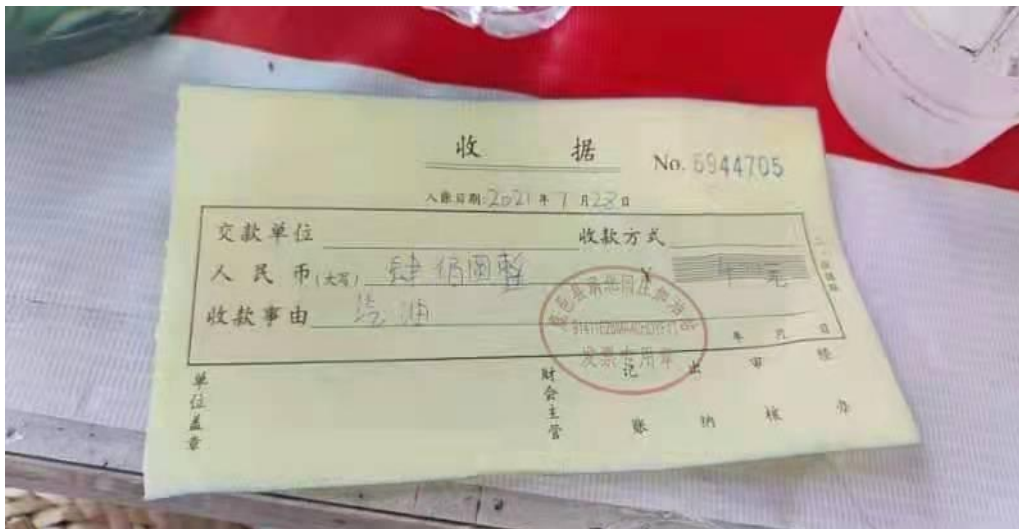 收 据
No. 6944705
入账日期:2021年7月28日
交款单位 收款方式
人民币(大写) 肆佰圆整 ¥ 元
收款事由 汽油
年 月 日
发票专用章
单位盖章 财会主管 记账 出纳 审核 经办